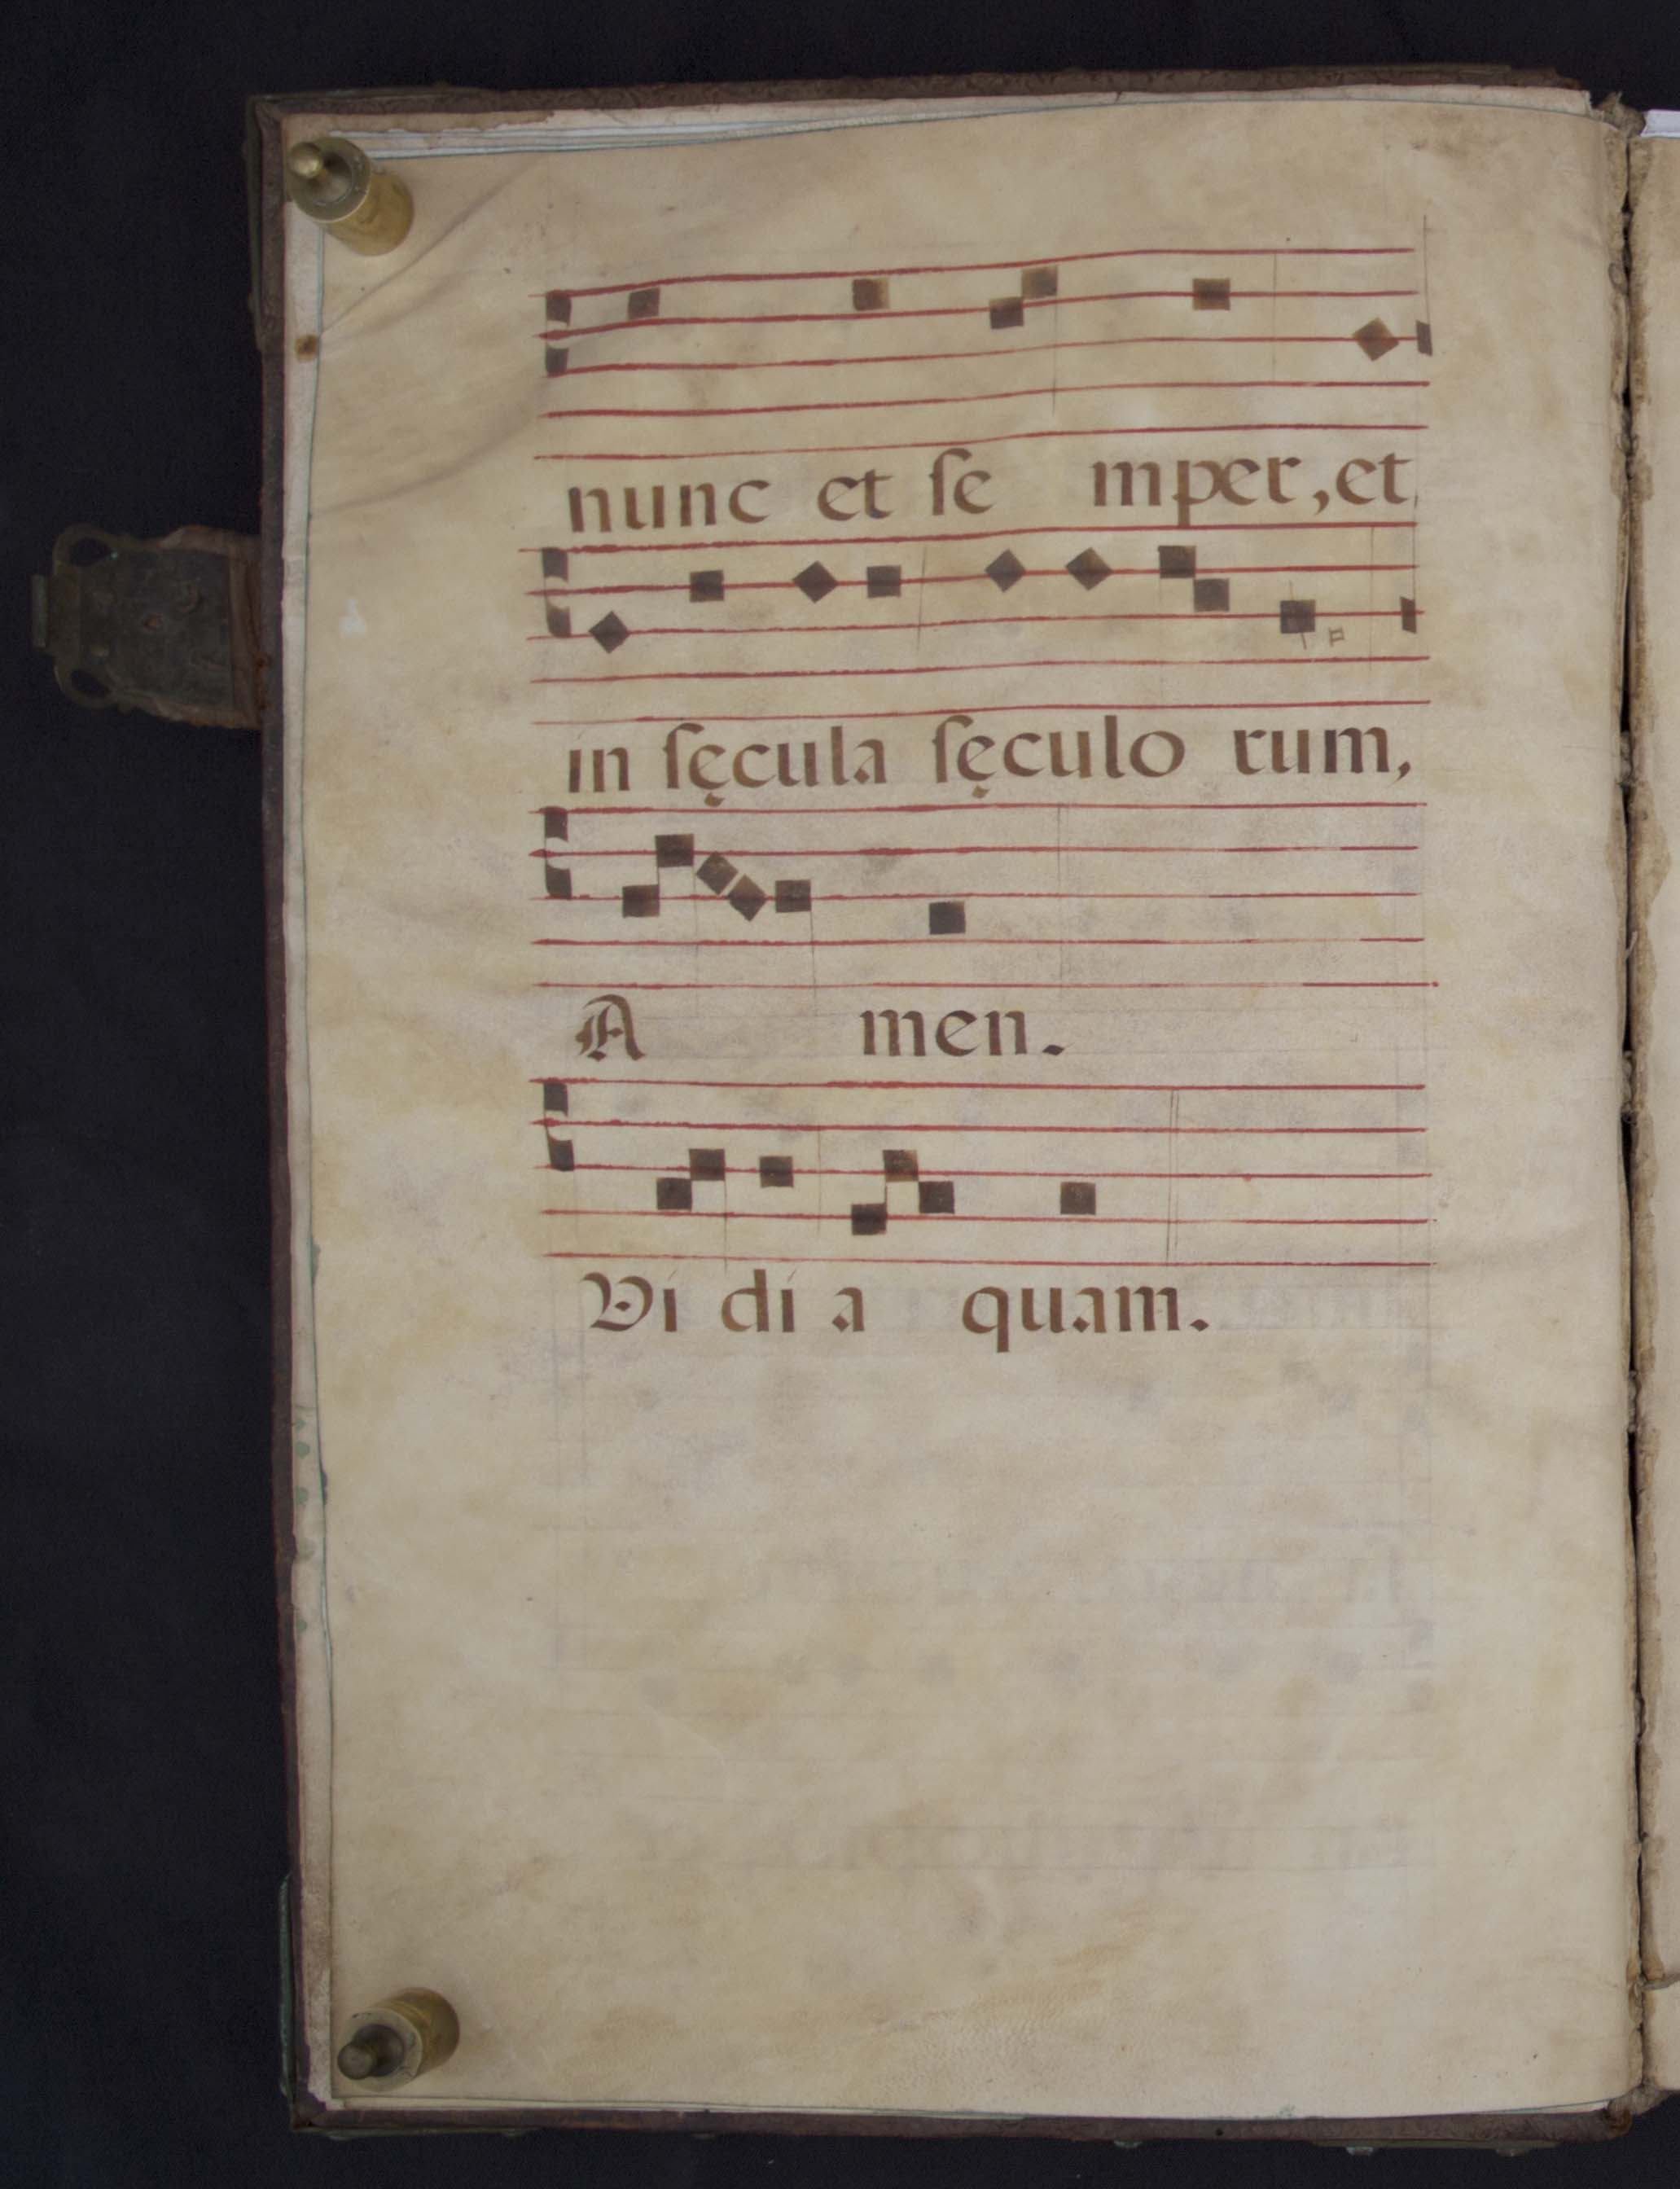 nunc et ſe mper, et
in ſęcula ſęculo rum,
A men.
Vi di a quam.